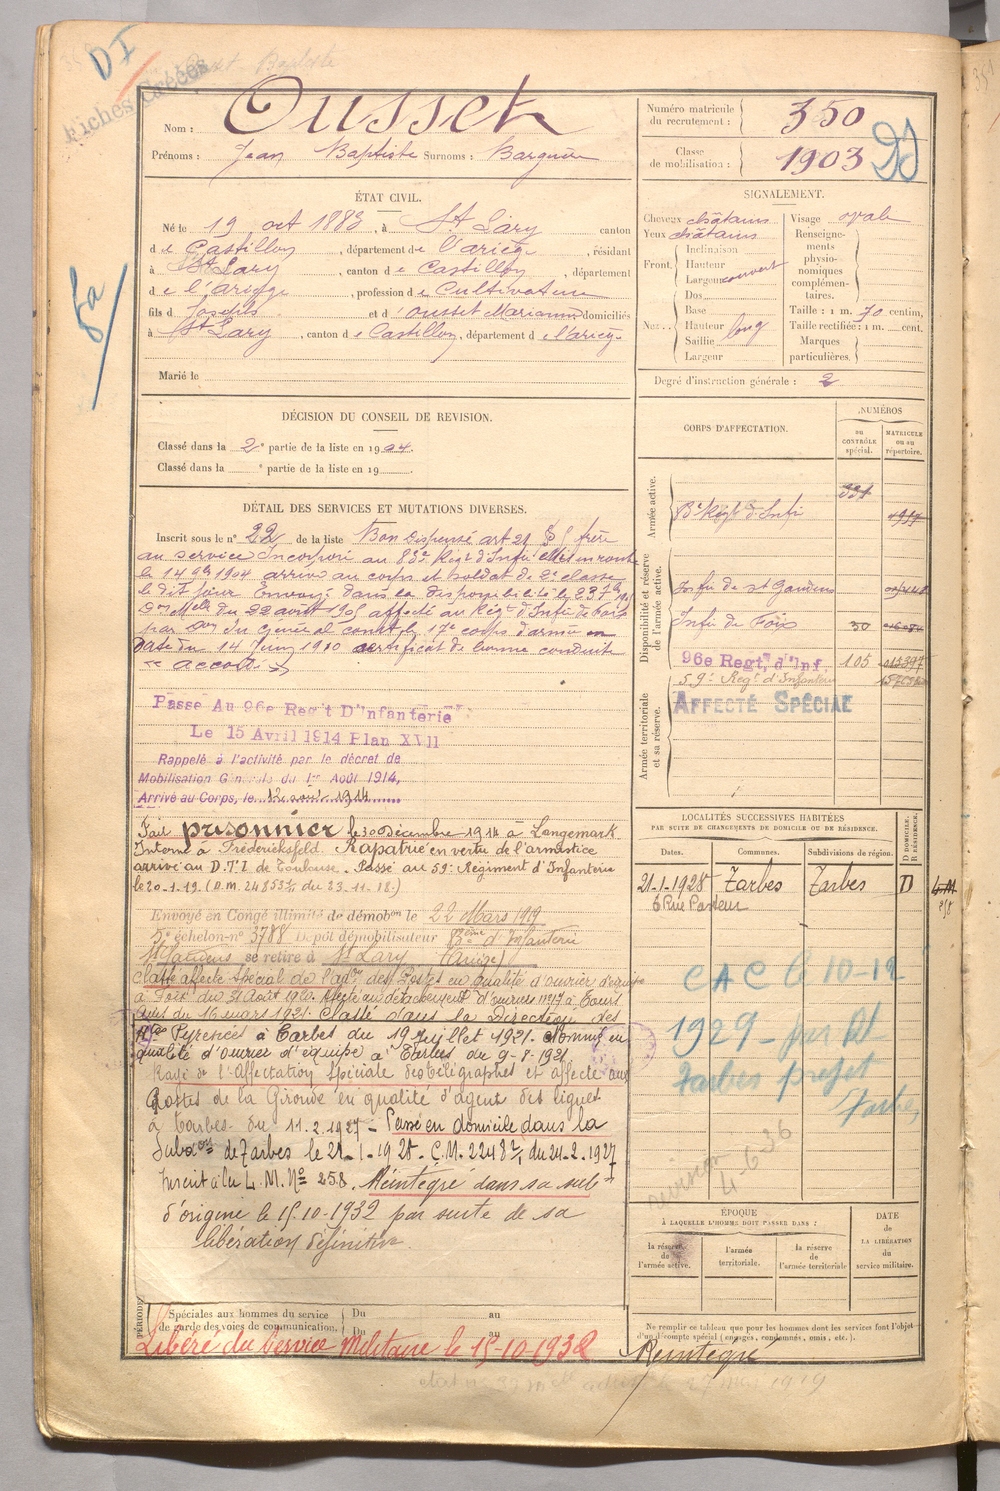 DI
Fiches Créées
Nom : Ousset
Prénoms : Jean Baptiste Surnoms : Barguère
Numéro matricule du recrutement : 350
Classe de mobilisation : 1903
ÉTAT CIVIL.
Né le 19 oct 1883, à St Lary canton
de Castillon, département de l'ariège, résidant
à St Lary, canton de Castillon, département
de l'ariège, profession de Cultivateur
fils de Joseph et d'ousset Marianne domiciliés
à St Lary, canton de Castillon, département de l'ariège
Marié le
SIGNALEMENT.
Cheveux châtains
Yeux châtains
Front. Inclinaison
Hauteur
Largeur couvert
Nez Dos
Base
Hauteur long
Saillie
Largeur
Visage ovale
Renseignements physionomiques complémentaires.
Taille : 1 m. 70 centim.
Taille rectifiée : 1 m. cent.
Marques particulières.
Degré d'instruction générale : 2
DÉCISION DU CONSEIL DE REVISION.
Classé dans la 2e partie de la liste en 1904.
Classé dans la e partie de la liste en 19
CORPS D'AFFECTATION.
NUMÉROS
au CONTRÔLE spécial.
MATRICULE ou au répertoire.
Armée active.
Disponibilité et réserve de l'armée active.
Infie de St Gaudens
Infie de Foix 30
96e Regt, d'Inf. 105
59e Regt d'Infanterie
AFFECTÉ SPÉCIAL
Armée territoriale et sa réserve.
DÉTAIL DES SERVICES ET MUTATIONS DIVERSES.
Inscrit sous le n° 22 de la liste Bon Dispensé art 21 frère
au service Incorporé au 83e Régt d'Infie Mis en route
le 14 9bre 1904 arrivé au corps et soldat de 2e classe
le dit jour Envoyé dans la disponibilité le 23 7bre 1905
Don Melle du 22 août 1905 affecté au Régt d'Infie de Foix
par Don du Général comt le 17e corps d'armée en
date du 14 Juin 1910 certificat de bonne conduite
« accordé »
Passé Au 96e Reg't D'Infanterie
Le 15 Avril 1914 Plan XVII
Rappelé à l'activité par le décret de
Mobilisation Générale du 1er Août 1914,
Arrivé au Corps, le 12 août 1914
Fait prisonnier le 30 Décembre 1914 à Langemark
Interné à Frédericksfeld. Rapatrié en vertu de l'armistice
arrivé au D.T.I de Toulouse. Passé au 59e Régiment d'Infanterie
le 20-1-19. (D.M. 24853 du 23-11-18.)
Envoyé en Congé illimité de démobon le 22 Mars 1919
3e échelon-n° 3788 Dépôt démobilisateur 83ème d'Infanterie
St Gaudens se retire à St Lary (Ariège)
Classé affecté spécial de l'adon des Postes en qualité d'ouvrier d'équipe
à Foix du 31 Août 1920. Affecté au détachement d'ouvriers n° 17 à Tours
du 16 mars 1921. Classé dans la Direction des
Htes Pyrénées à Tarbes du 19 Juillet 1921. Nommé en
qualité d'ouvrier d'équipe à Tarbes du 9-8-1921.
Rayé de l'Affectation Spéciale des télégraphes et affecté aux
Postes de la Gironde en qualité d'agent des lignes
à Tarbes du 11.2.1927 - Passé en domicile dans la
Subdon de Tarbes le 21-1-1928 - C.M. du 24-2-1927
Inscrit à la L.M. No 258. Réintégré dans sa subon
d'origine le 15-10-1932 par suite de sa
libération définitive.
LOCALITÉS SUCCESSIVES HABITÉES
PAR SUITE DE CHANGEMENTS DE DOMICILE OU DE RÉSIDENCE.
Dates. Communes. Subdivisions de région. D DOMICILE. R RÉSIDENCE.
21-1-1928 Tarbes Tarbes D
6 Rue Pasteur
L.M.
258
CAC le 10-12
1929
Tarbes
ÉPOQUE
À LAQUELLE L'HOMME DOIT PASSER DANS :
la réserve de l'armée active.
l'armée territoriale.
la réserve de l'armée territoriale
DATE DE LA LIBÉRATION du service militaire.
PÉRIODE
Spéciales aux hommes du service de garde des voies de communication.
Du au
Du au
Libéré du Service Militaire le 15-10-1932
Ne remplir ce tableau que pour les hommes dont les services font l'objet
d'un décompte spécial (engagés, condamnés, omis, etc.).
Réintégré